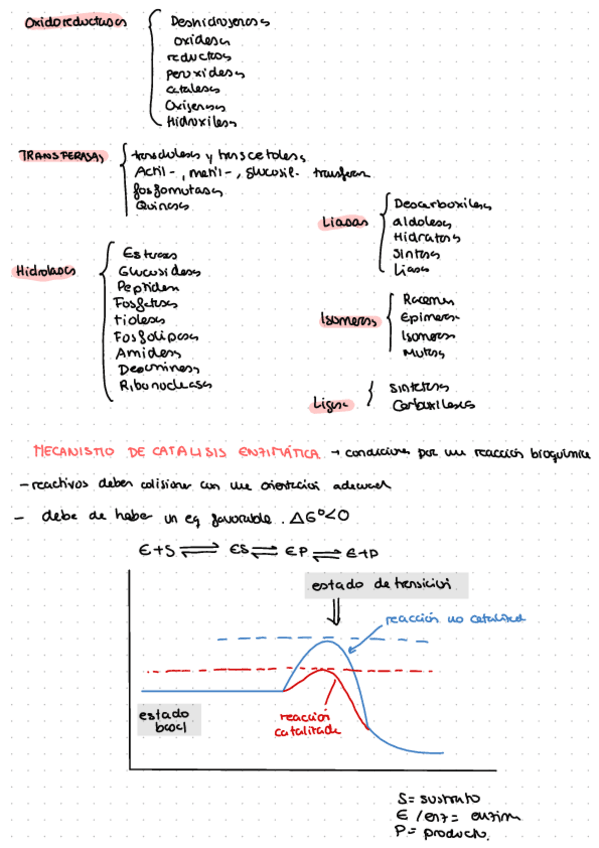 Oxidoreductasas
Deshidrogenasas
oxidasas
reductasas
peroxidasas
catalasas
Oxigenasas
Hidroxilasas
TRANSFERASAS
transaldolasas y transcetolasas
Acil-, metil-, glucosil- transferasa
fosfomutasas
Quinasas
Liasas
Descarboxilasas
aldolasas
Hidratasas
Sintasas
Liasas
Hidrolasas
Esterasas
Glucosidasas
Peptidasas
Fosfatasas
tiolasas
Fosfolipasas
Amidasas
Desaminasas
Ribonucleasas
Isomerasas
Racemasas
Epimerasas
Isomerasas
Mutasas
Ligasas
Sintetasas
Carboxilasas
MECANISMO DE CATALISIS ENZIMÁTICA → condiciones por una reacción bioquímica
- reactivos deben colisionar con una orientación adecuada
- debe de haber un eq favorable. ΔG°<0
E+S ⇌ ES ⇌ EP ⇌ E+P
estado de transición
reacción no catalizada
estado basal
reacción catalizada
S= sustrato
E / enz = enzima
P= producto.